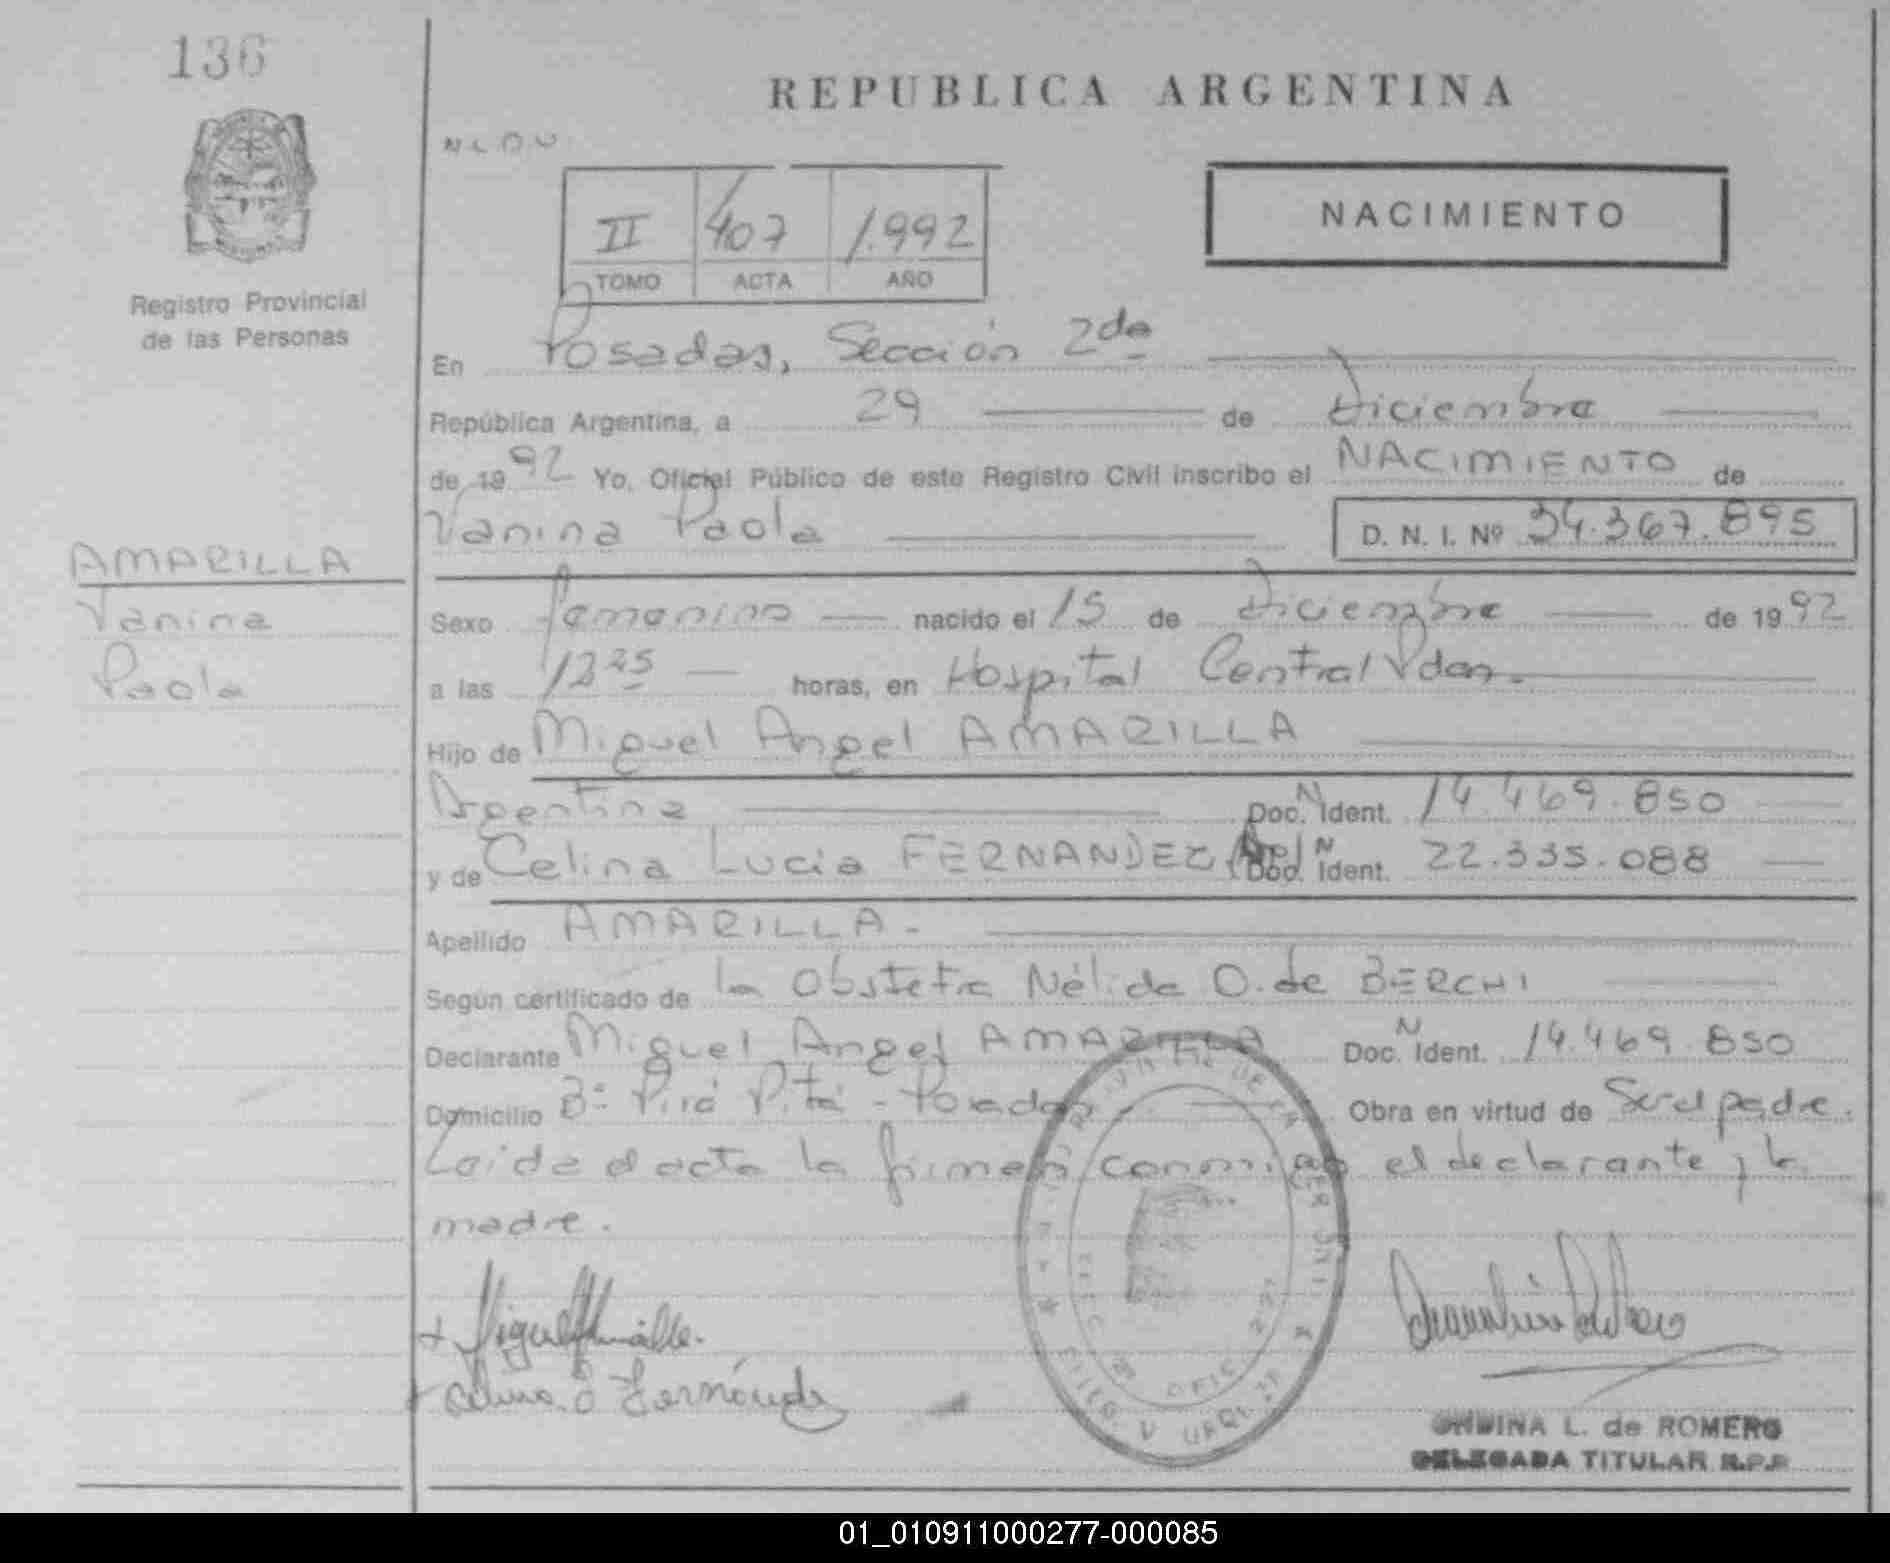 136
REPUBLICA ARGENTINA
N L D U
II 407 1.992
TOMO ACTA AÑO
NACIMIENTO
Registro Provincial
de las Personas
En Posadas, Sección 2da
República Argentina, a 29 de Diciembre
de 1992 Yo, Oficial Público de este Registro Civil inscribo el NACIMIENTO de
Vanina Paola D. N. I. Nº 34.367.895
AMARILLA
Vanina
Paola
Sexo femenino nacido el 15 de Diciembre de 1992
a las 12 25 horas, en Hospital Central Pdas.
Hijo de Miguel Angel AMARILLA
Argentina Doc. N Ident. 14.469.850
y de Celina Lucia FERNANDEZ, Doc. N Ident. 22.335.088
Apellido AMARILLA.
Según certificado de la Obstetra Nélida O. de BERCHI
Declarante Miguel Angel AMARILLA Doc. N Ident. 14.469.850
Domicilio Bº Pirá Pitá - Posadas. Obra en virtud de Ser el padre.
Leida el acta la firman conmigo el declarante y la
madre.
Fernández
L. de ROMERO
DELEGADA TITULAR R.P.P.
01_010911000277-000085